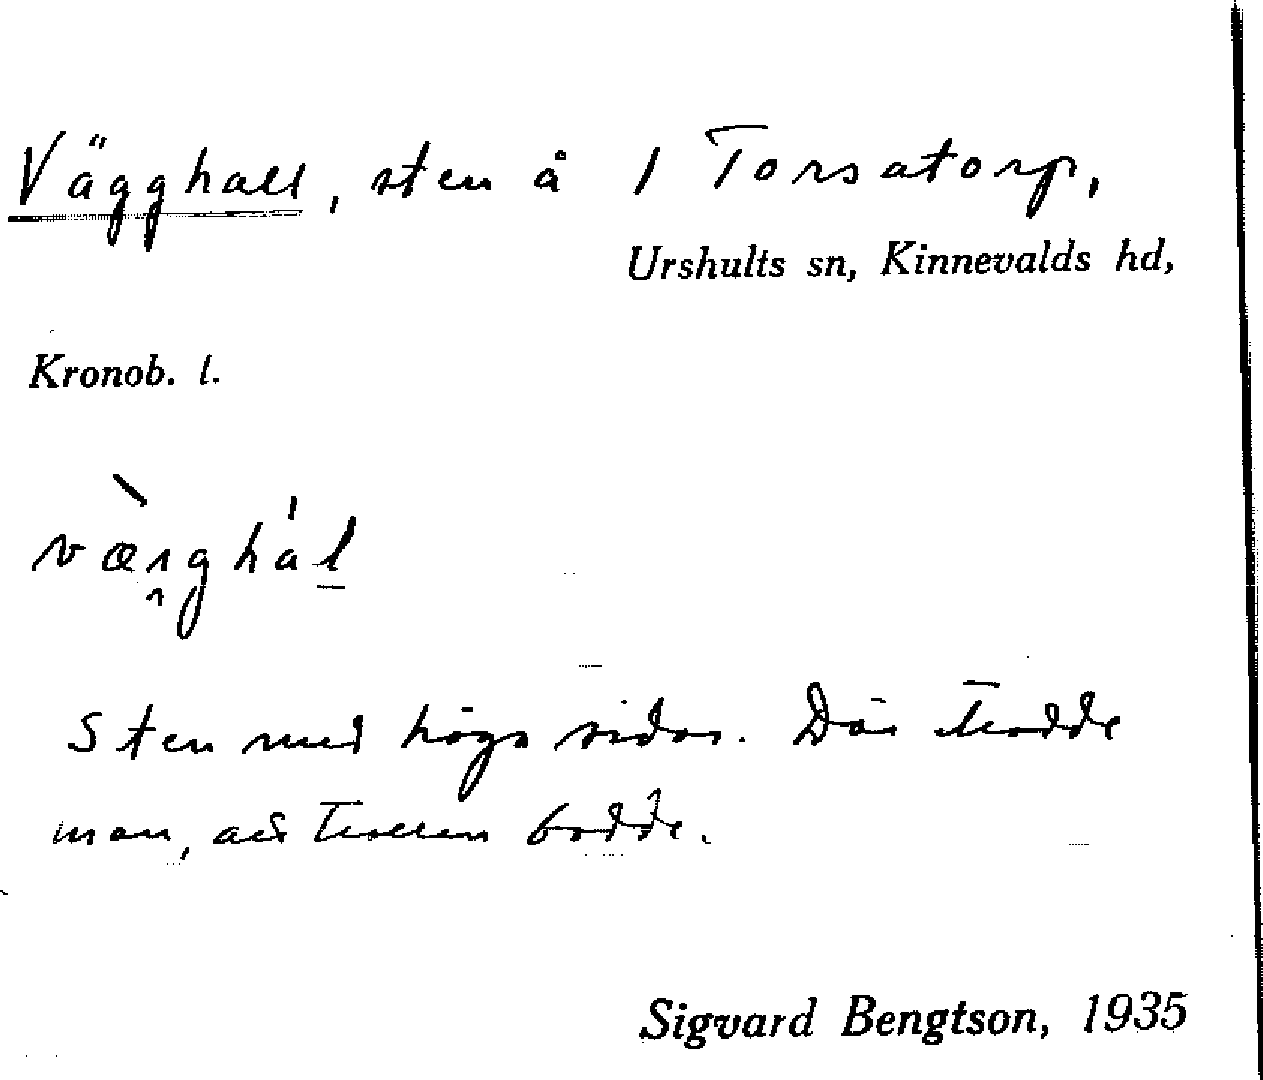 Vägghall, sten å 1 Torsatorp,
Urshults sn, Kinnevalds hd,
Kronob. l.
Sten med höga sidor. Där trodde
man, att trollen bodde.
Sigvard Bengtson, 1935